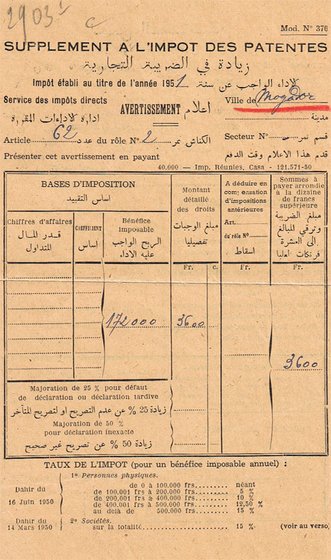 2903 c
Mod. N° 376
SUPPLEMENT A L'IMPOT DES PATENTES
زيادة في الضريبة التجارية
Impôt établi au titre de l'année 1951 لاداء الواجب عن سنة
Service des impôts directs AVERTISSEMENT إعلام Ville de Mogador
إدارة لاداءات المقررة مدينة
Article 62 عدد du rôle N° 2 الكناش نمر Secteur N° قسم نمر
Présenter cet avertissement en payant قدم هذا الاعلام وقت الدفع
40.000 — Imp. Réunies, Casa - 121.571-50
BASES D'IMPOSITION
اساس التقييد
Chiffres d'affaires
قدر المال المتداول
COEFFICIENT
اساس
Bénéfice imposable
الربح الواجب عليه الاداء
Montant détaillé des droits
مبلغ الوجبات تفصيليا
A déduire en compensation d'impositions antérieures
Art.
du rôle N°
اسقاط
Sommes à payer arrondie à la dizaine de francs supérieure
مبلغ الضريبة وترقى المبالغ الى العشرة فرنكات اعلاها
Fr. c. Fr. Fr.
172000 3600
3600
Majoration de 25 % pour défaut de déclaration ou déclaration tardive
زيادة 25 % عن عدم التصريح او لتصريح المتأخر
Majoration de 50 % pour déclaration inexacte
زيادة 50 % عن تصريح غير صحيح
TAUX DE L'IMPOT (pour un bénéfice imposable annuel) :
Dahir du 16 juin 1950
1° Personnes physiques.
de 0 à 100.000 frs néant
de 100.001 frs à 200.000 frs 5 %
de 200.001 frs à 400.000 frs 10 %
de 400.001 frs à 500.000 frs 12,50 %
au delà de 500.000 frs 15 %
Dahir du 14 mars 1950
2° Sociétés.
sur la totalité 15 % (voir au verso)